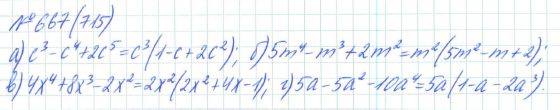 №667(715)
а) c³-c⁴+2c⁵=c³(1-c+2c²); б) 5m⁴-m³+2m²=m²(5m²-m+2);
в) 4x⁴+8x³-2x²=2x²(2x²+4x-1); г) 5a-5a²-10a⁴=5a(1-a-2a³).